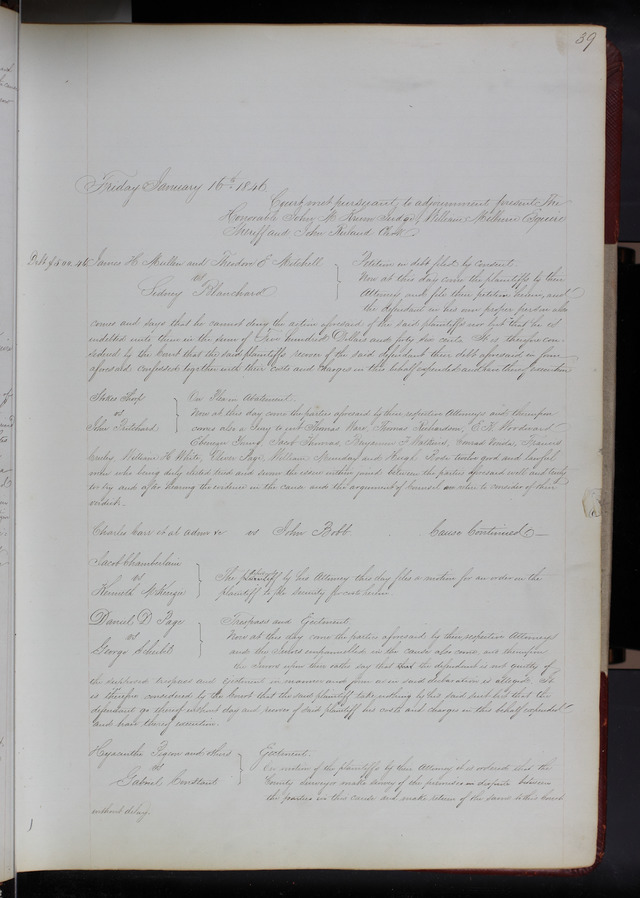 39
Friday January 16th 1846
Court met pursuant to adjournment present The
Honorable John M. Krum Judge, William Milburn Esquire
Sheriff and John Ruland Clerk
Debt $500.46 James H. Mullen and Theodore E. Mitchell
vs
Sidney Blanchard
Petition in debt filed by consent.
Now at this day come the plaintiffs by their
Attorney and file their petition herein, and
the defendant in his own proper person also
comes and says that he cannot deny the action aforesaid of the said plaintiffs nor but that he is
indebted unto them in the sum of Five hundred Dollars and forty six cents. It is therefore con-
sidered by the Court that the said plaintiffs recover of the said defendant their debt aforesaid in form
aforesaid confessed together with their costs and charges in this behalf expended and have thereof execution
vs
John Pritchard
On Plea in Abatement.
Now at this day come the parties aforesaid by their respective Attorneys and thereupon
comes also a Jury to wit Thomas Ware, Thomas Richardson, Woodward
Ebenezer Young, Jacob Thomas, Benjamin F. Watkins, Conrad Francis
William H. White, Oliver Page, William Munday and Hugh Rose twelve good and lawful
men who being duly elected tried and sworn the issue within joined between the parties aforesaid well and truly
to try and after hearing the evidence in the cause and the argument of Counsel retire to consider of their
verdict.
Charles Carr et al admr &c vs John Bobb . Cause Continued
Jacob Chamberlain
vs
Kenneth McKenzie
The plaintiff by his Attorney this day files a motion for an order on the
plaintiff to file security for costs herein
Daniel D. Page
vs
George Schulib
Trespass and Ejectment.
Now at this day come the parties aforesaid by their respective Attorneys
and the Jurors empannelled in the cause also come, and thereupon
the Jurors upon their oaths say that the defendant is not guilty of
the supposed trespass and ejectment in manner and form as in said declaration is alleged. It
is therefore considered by the Court that the said plaintiff take nothing by his said suit but that the
defendant go thereof without day and recover of said plaintiff his costs and charges in this behalf expended
and have thereof execution.
Hyacinthe and others
vs
Gabriel Constant
Ejectment.
On motion of the plaintiffs by their Attorney it is ordered that the
County Surveyor make survey of the premises in dispute between
the parties in this cause and make return of the same to this Court
without delay.